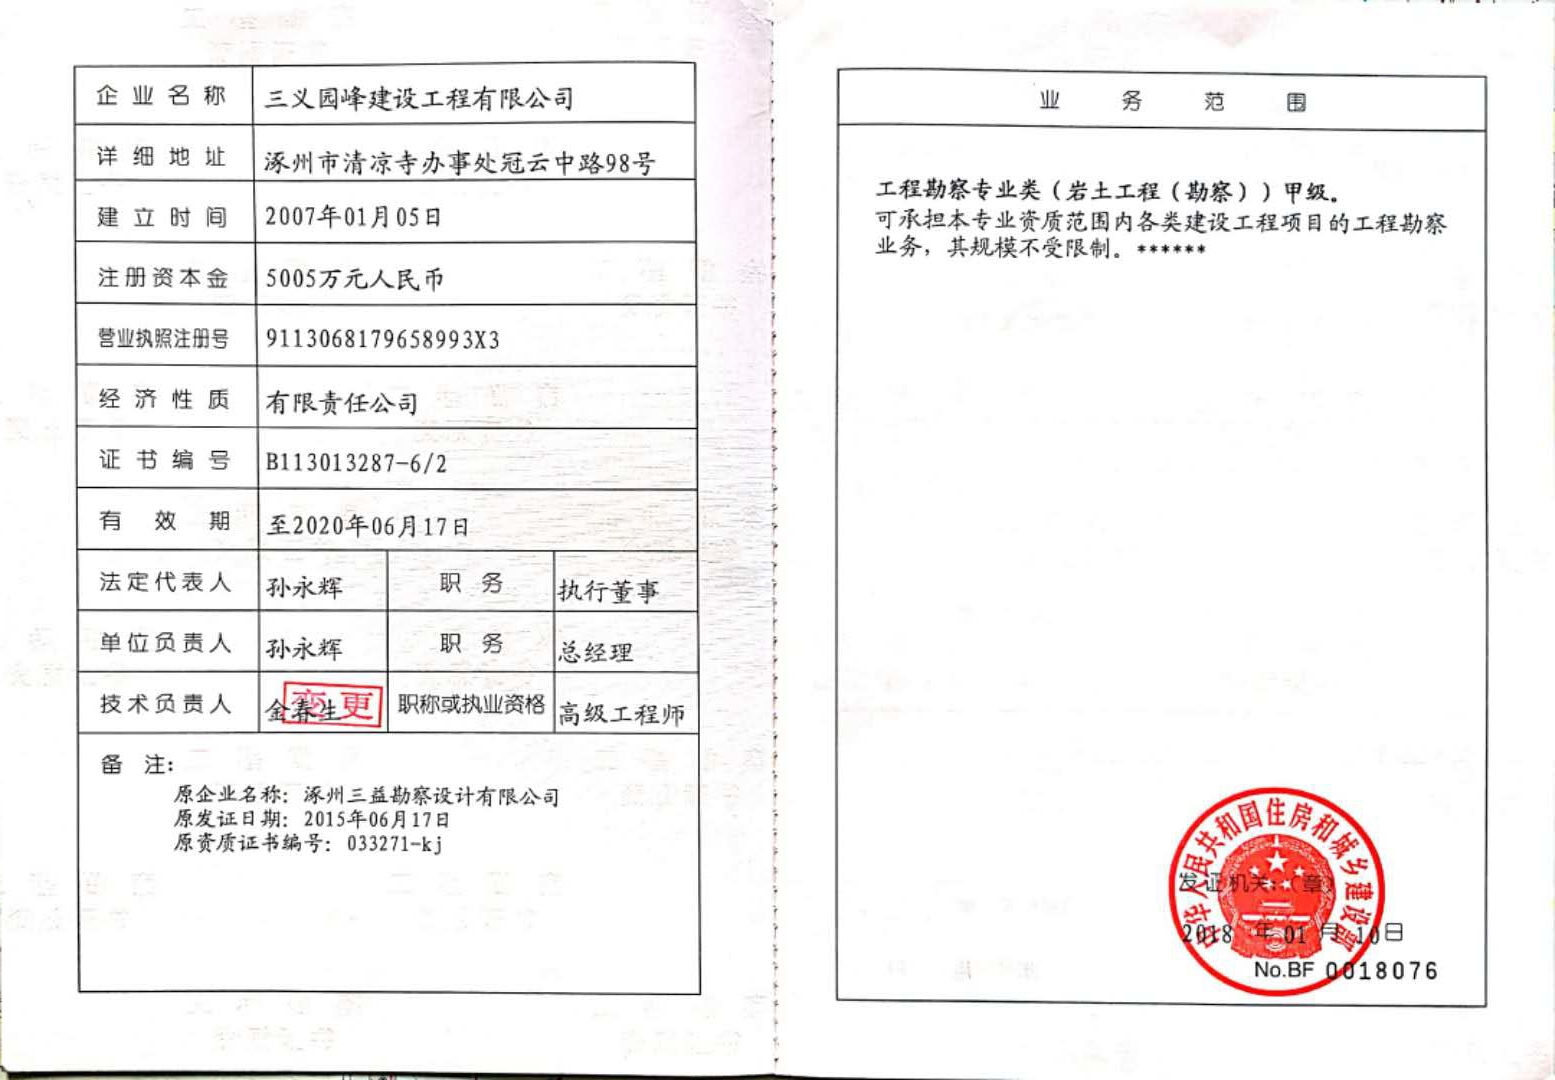 企业名称 三义园峰建设工程有限公司
详细地址 涿州市清凉寺办事处冠云中路98号
建立时间 2007年01月05日
注册资本金 5005万元人民币
营业执照注册号 9113068179658993X3
经济性质 有限责任公司
证书编号 B113013287-6/2
有效期 至2020年06月17日
法定代表人 孙永辉 职务 执行董事
单位负责人 孙永辉 职务 总经理
技术负责人 金春生 变更 职称或执业资格 高级工程师
备注:
原企业名称: 涿州三益勘察设计有限公司
原发证日期: 2015年06月17日
原资质证书编号: 033271-kj
业务范围
工程勘察专业类(岩土工程(勘察))甲级。
可承担本专业资质范围内各类建设工程项目的工程勘察
业务,其规模不受限制。******
中华人民共和国住房和城乡建设部
发证机关:(章)
2018年01月10日
No.BF 0018076